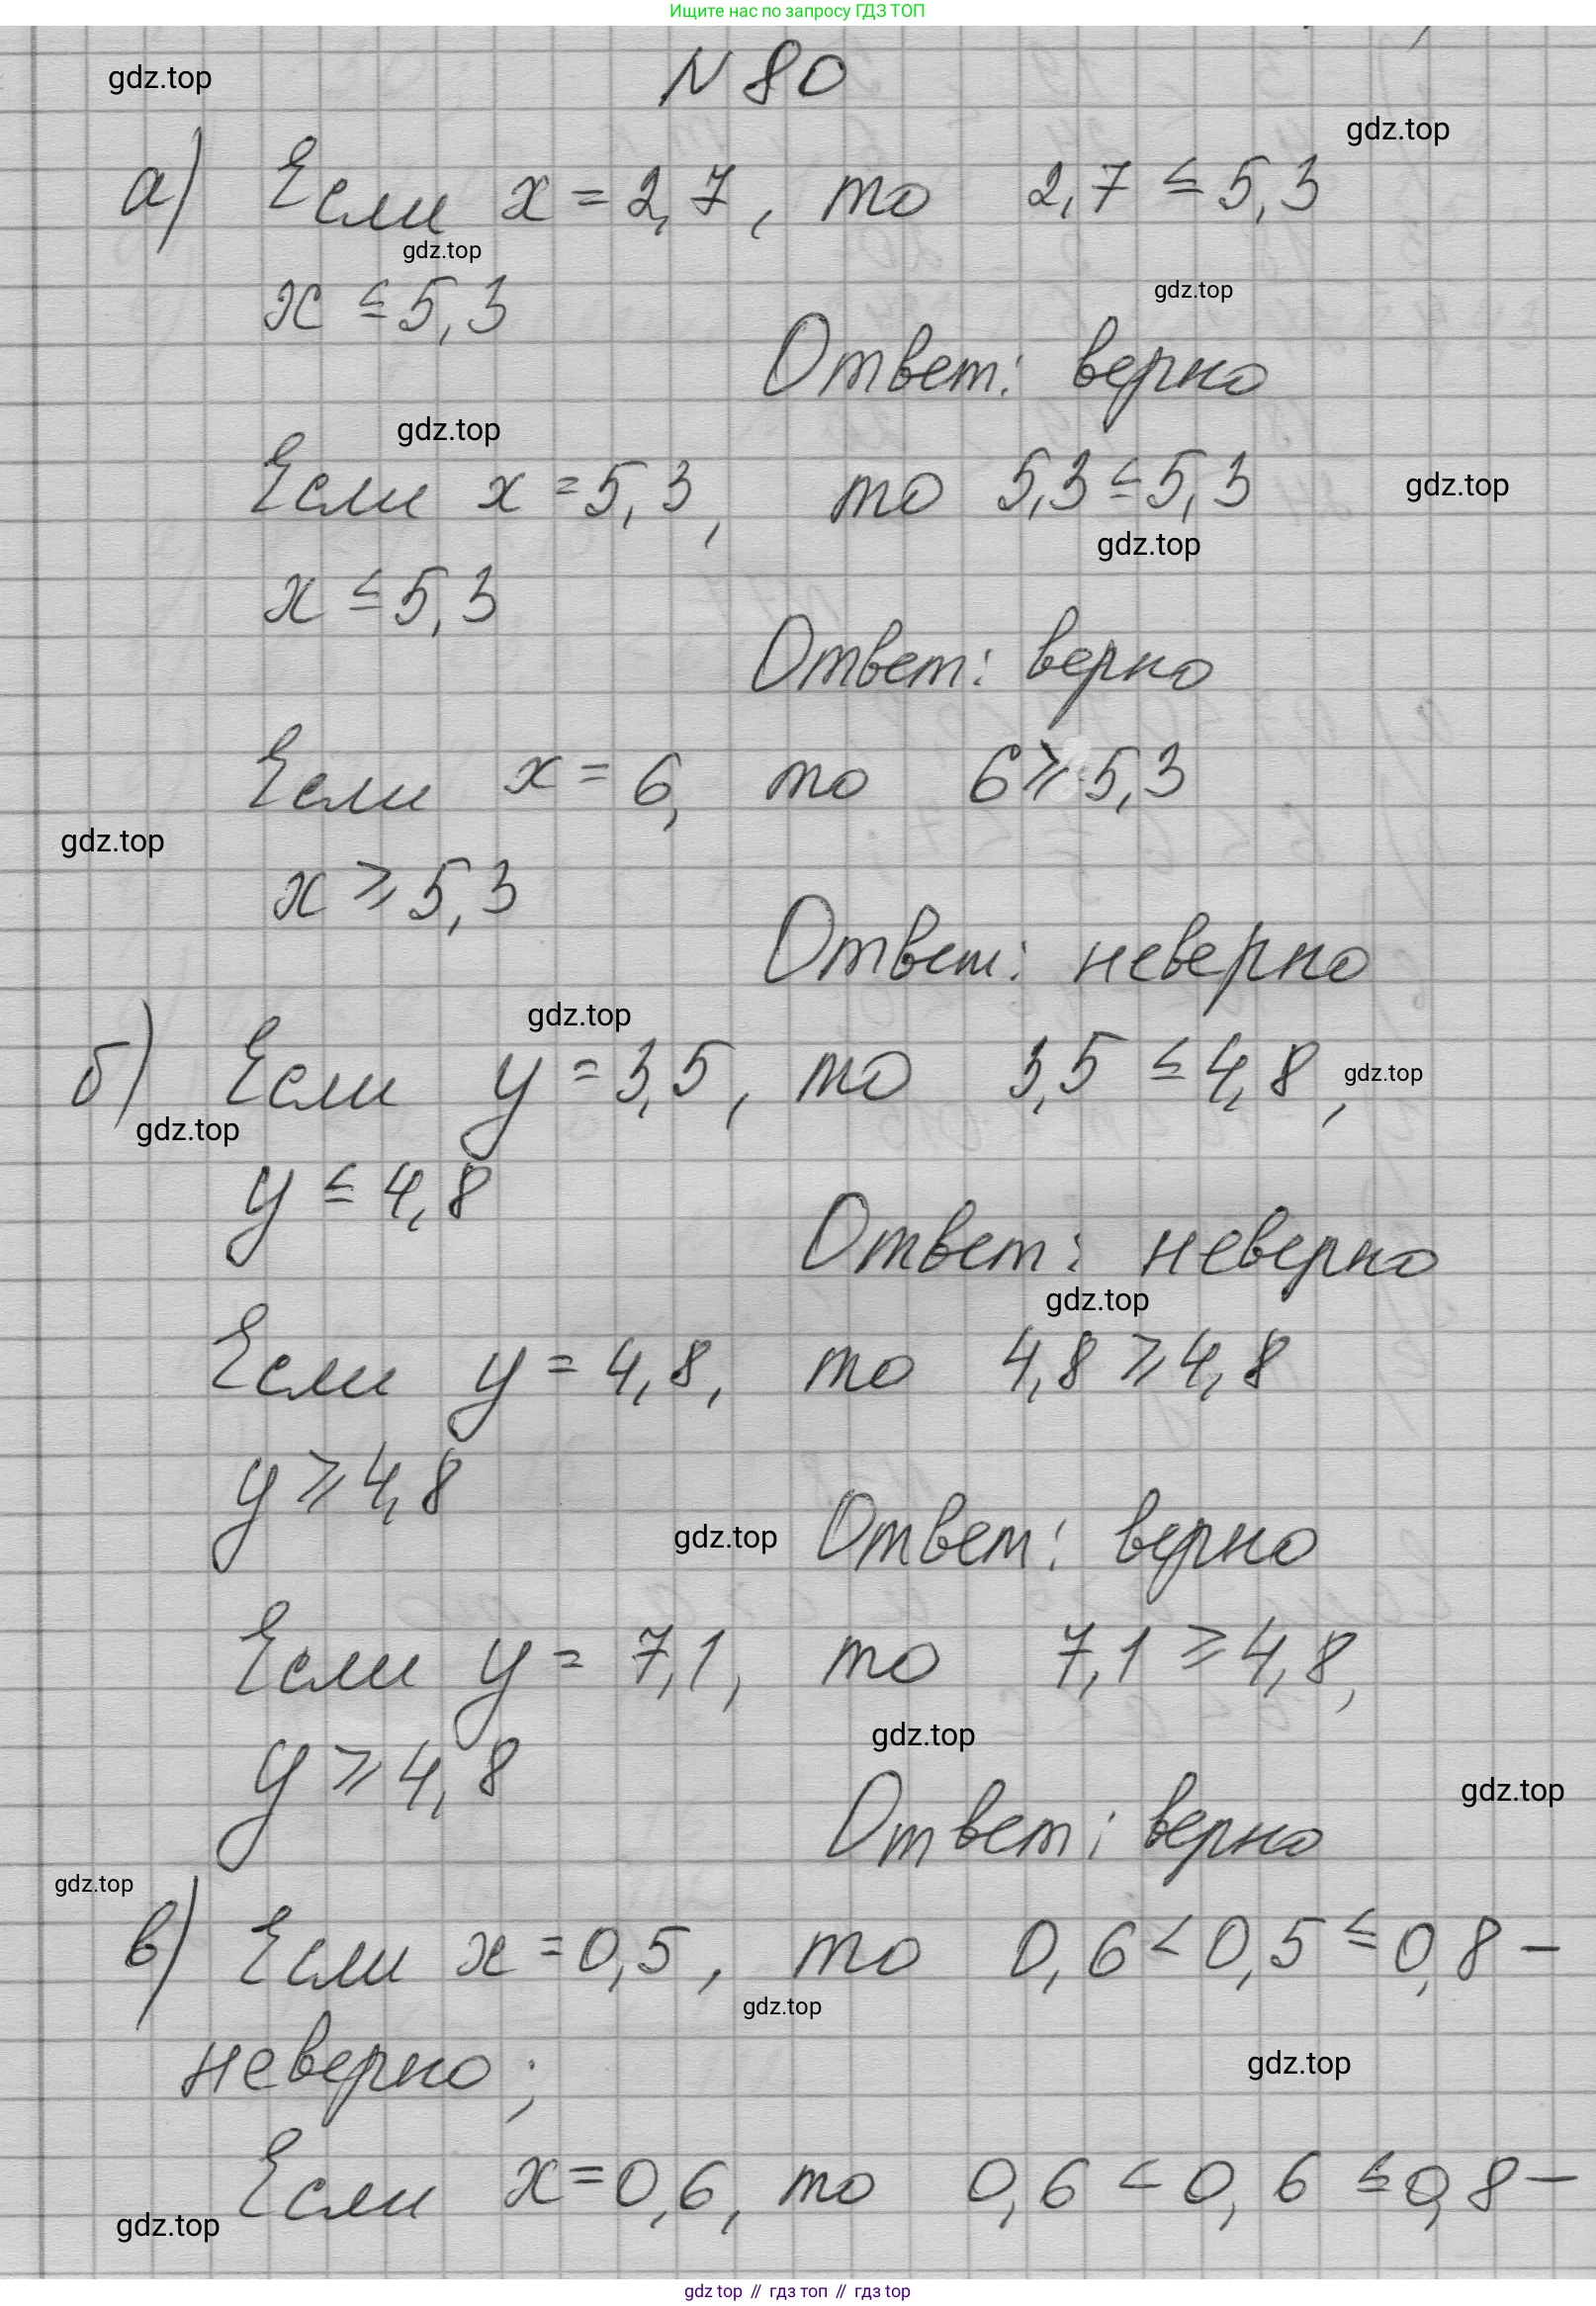 Ищите нас по запросу ГДЗ ТОП
N 80
gdz.top
gdz.top
а) Если x = 2,7, то 2,7 ≤ 5,3
gdz.top
x ≤ 5,3
gdz.top
Ответ: верно
gdz.top
Если x = 5,3, то 5,3 ≤ 5,3
gdz.top
gdz.top
x ≤ 5,3
Ответ: верно
Если x = 6, то 6 ⩾ 5,3
gdz.top
x ⩾ 5,3
Ответ: неверно
gdz.top
б) Если y = 3,5, то 3,5 ≤ 4,8,
gdz.top
gdz.top
y ≤ 4,8
Ответ: неверно
gdz.top
Если y = 4,8, то 4,8 ⩾ 4,8
y ⩾ 4,8
gdz.top
Ответ: верно
Если y = 7,1, то 7,1 ⩾ 4,8,
gdz.top
y ⩾ 4,8
gdz.top
Ответ: верно
gdz.top
в) Если x = 0,5, то 0,6 < 0,5 ≤ 0,8 –
gdz.top
неверно;
gdz.top
Если x = 0,6, то 0,6 < 0,6 ≤ 0,8 –
gdz.top
gdz top // гдз топ // гдз top